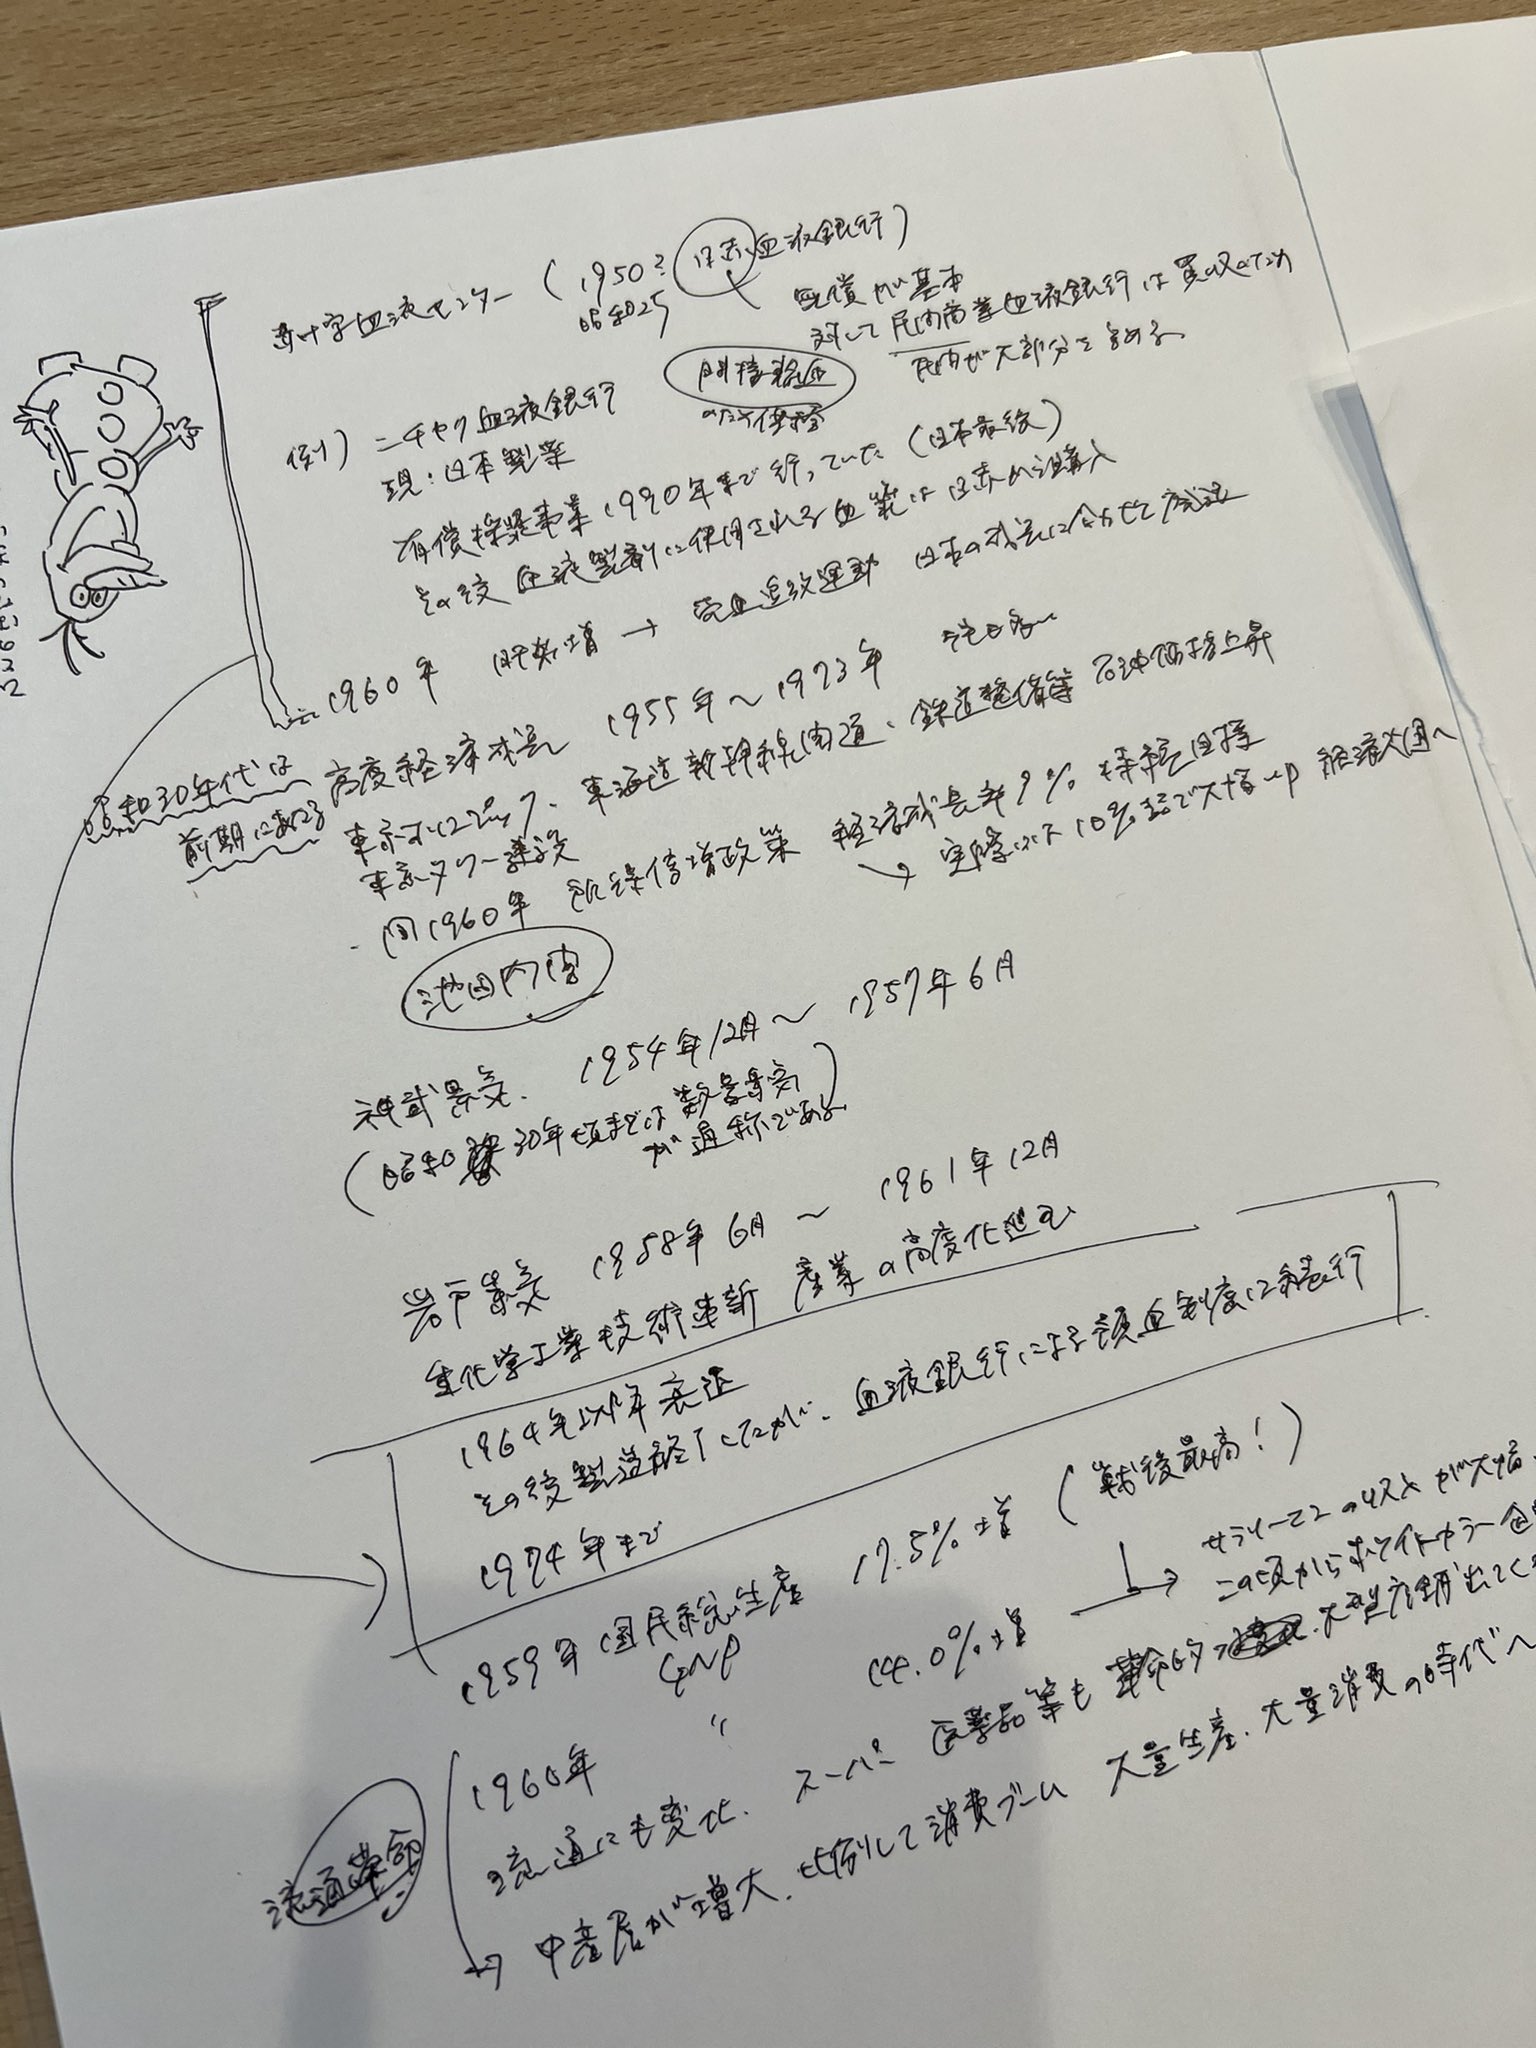 赤十字血液センター (1950? 日赤血液銀行)
昭和25
無償が基本
対して民間商業血液銀行は買収のため
民間が大部分を占める
例) ニチヤク血液銀行
現:日本製薬
有償採漿事業1990年まで行っていた (日本最後)
その後 血液製剤に使用される血漿は日赤から購入
1960年 肝炎増 → 売血追放運動 日本の成長に合わせて
昭和30年代は
前期にあたる
高度経済成長 1955年〜1973年
東京オリンピック、東海道新幹線開通、鉄道整備等
東京タワー建設
・同1960年 所得倍増政策 経済成長率9% 持続目標
→ 実際は 10%まで大幅up 経済大国へ
池田内閣
神武景気 1954年12月〜1957年6月
(昭和30年頃までは数量景気
が通称である)
岩戸景気 1958年6月〜1961年12月
重化学工業 技術革新 産業の高度化進む
1964年以降衰退
その後製造終了したが、血液銀行による預血制度に移行
1974年まで
1959年 国民総生産 17.5%増 (戦後最高!)
GNP
1960年 〃 14.0%増
→ サラリーマンの収入が大幅
この頃からホワイトカラー
流通にも変化、スーパー 医薬品等も革命的 大型店舗出てく
→ 中産層が増大、比例して消費ブーム 大量生産、大量消費の時代へ
流通革命